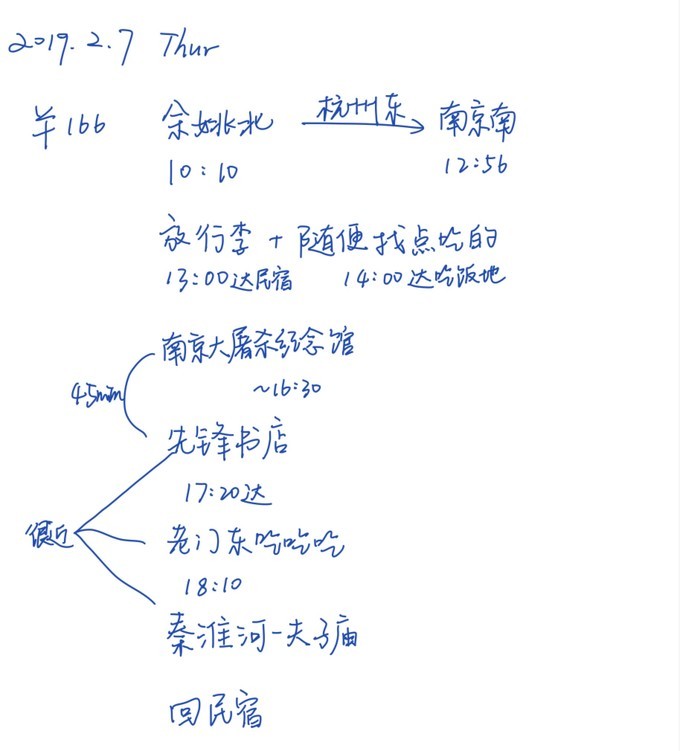 2019.2.7 Thur
羊166 余姚北 杭州东 南京南
10:10 12:56
放行李 + 随便找点吃的
13:00达民宿 14:00达吃饭地
南京大屠杀纪念馆
45min ~16:30
先锋书店
17:20达
很近 老门东吃吃吃
18:10
秦淮河-夫子庙
回民宿